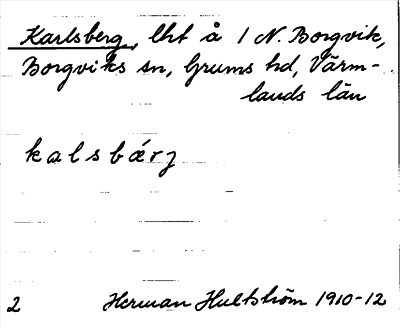 Karlsberg, lht å 1 N. Borgvik,
Borgviks sn, Grums hd, Värm-
lands län
kalsbárj
2 Herman Hultström 1910-12